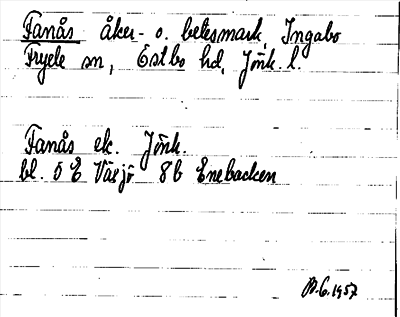 Fanås åker- o. betesmark, Ingabo
Fryele sn, Östbo hd, Jönk. l.
Fanås ek. Jönk.
bl. 5 E Växjö 8b Enebacken
B.G. 1957